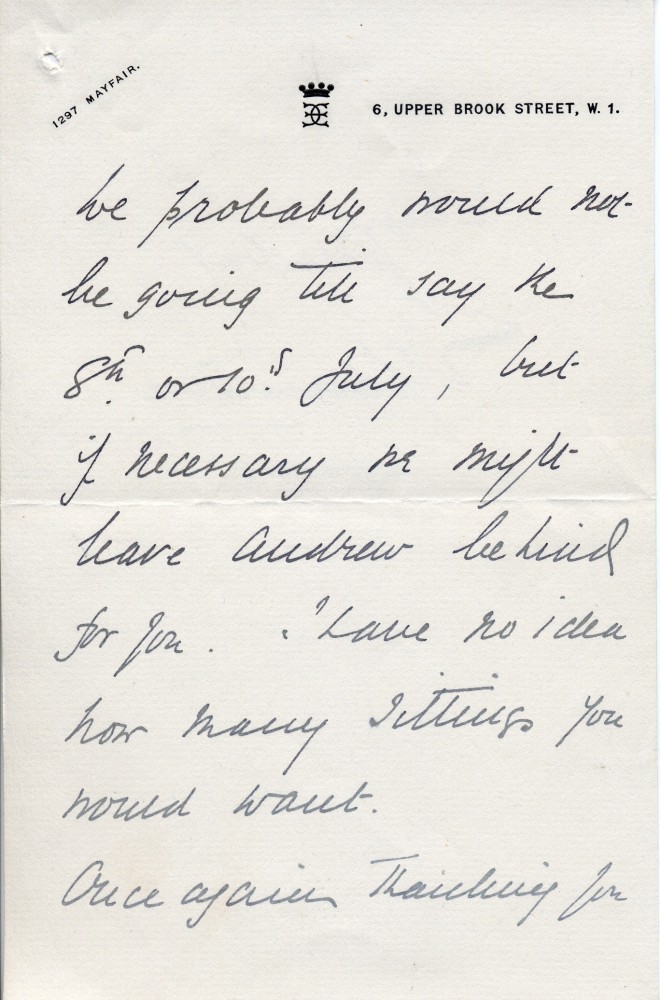 1297 MAYFAIR.
6, UPPER BROOK STREET, W. 1.
We probably would not
be going till say the
8th or 10th July, but
if necessary we might
leave Andrew behind
for you. I have no idea
how many sittings you
would want.
Once again thanking you